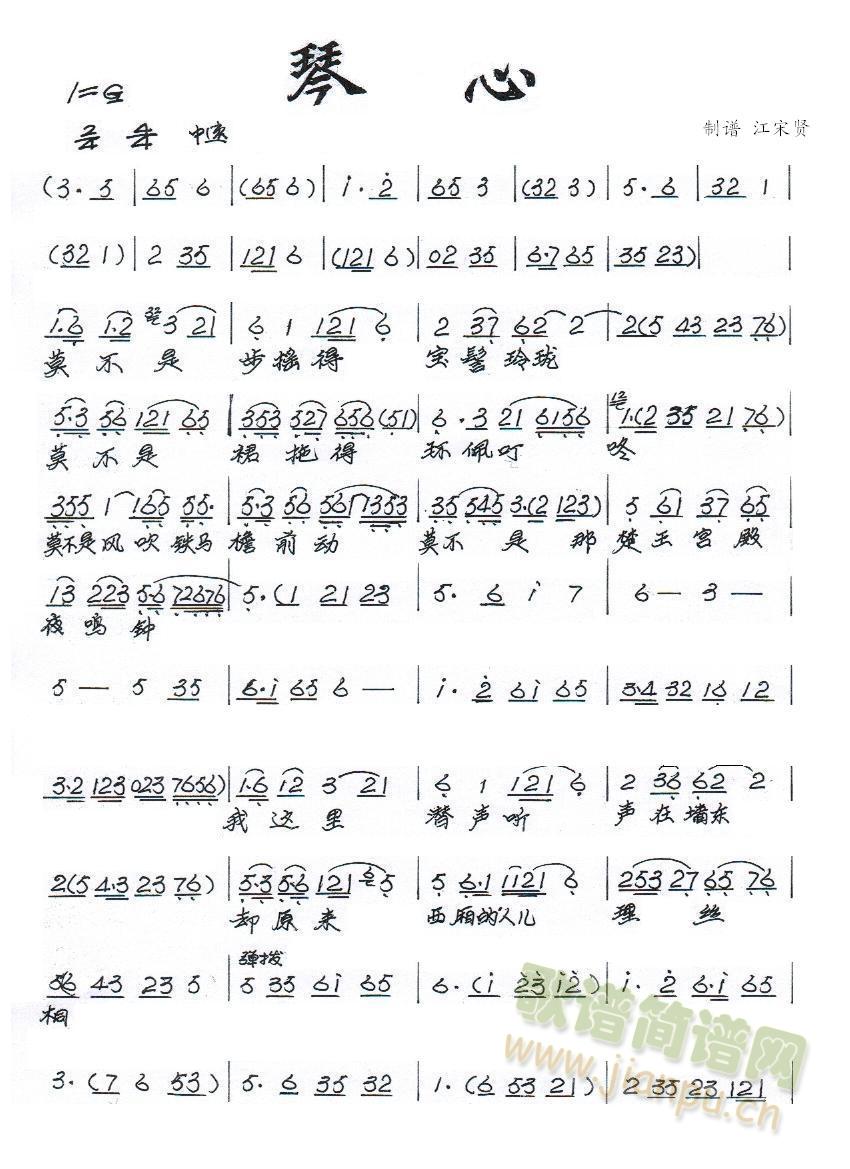 琴 心
1=G
2/4 4/4 中速
制谱 江宋贤
(3· 5 | 65 6 | (65 6) | i· 2 | 65 3 | (32 3) | 5· 6 | 32 1 |
(32 1) | 2 35 | 121 6 | (121 6) | 02 35 | 6·765 | 35 23) |
1·6 1·2 3 21 | 6 1 121 6 | 2 37 62 2 | 2(5 43 23 76) |
莫 不 是 步摇得 宝髻玲珑
5·3 56 121 65 | 353 527 656 (51) | 6· 3 21 6156 | 1·(2 35 21 76) |
莫 不 是 裙拖得 环佩叮 咚
355 1 165 55· | 5·3 56 561 7353 | 35 545 3·(2 123) | 5 61 37 65 |
莫不是风吹铁马 檐前动 莫不是那 楚王宫殿
13 223 5·6 72676 | 5·(1 21 23 | 5· 6 i 7 | 6 — 3 — |
夜鸣钟
5 — 5 35 | 6·i 65 6 — | i· 2 6i 65 | 3·4 32 16 12 |
3·2 123 023 7656) | 1·6 12 3 21 | 6 1 121 6 | 2 36 62 2 |
我这里 潜声听 声在墙东
2(5 4·3 23 76) | 5·3 5·6 121 5 | 5 6·1 1121 6 | 253 27 65 76 |
却原来 西厢的人儿 理 丝
56 43 23 5 | 5 35 6i 65 | 6·(i 23 i2) | i· 2 6·i 65 |
弹拨
桐
3·(7 6 53) | 5· 6 35 32 | 1·(6 53 21) | 2 35 23 121 |
歌谱简谱网
www.jianpu.cn